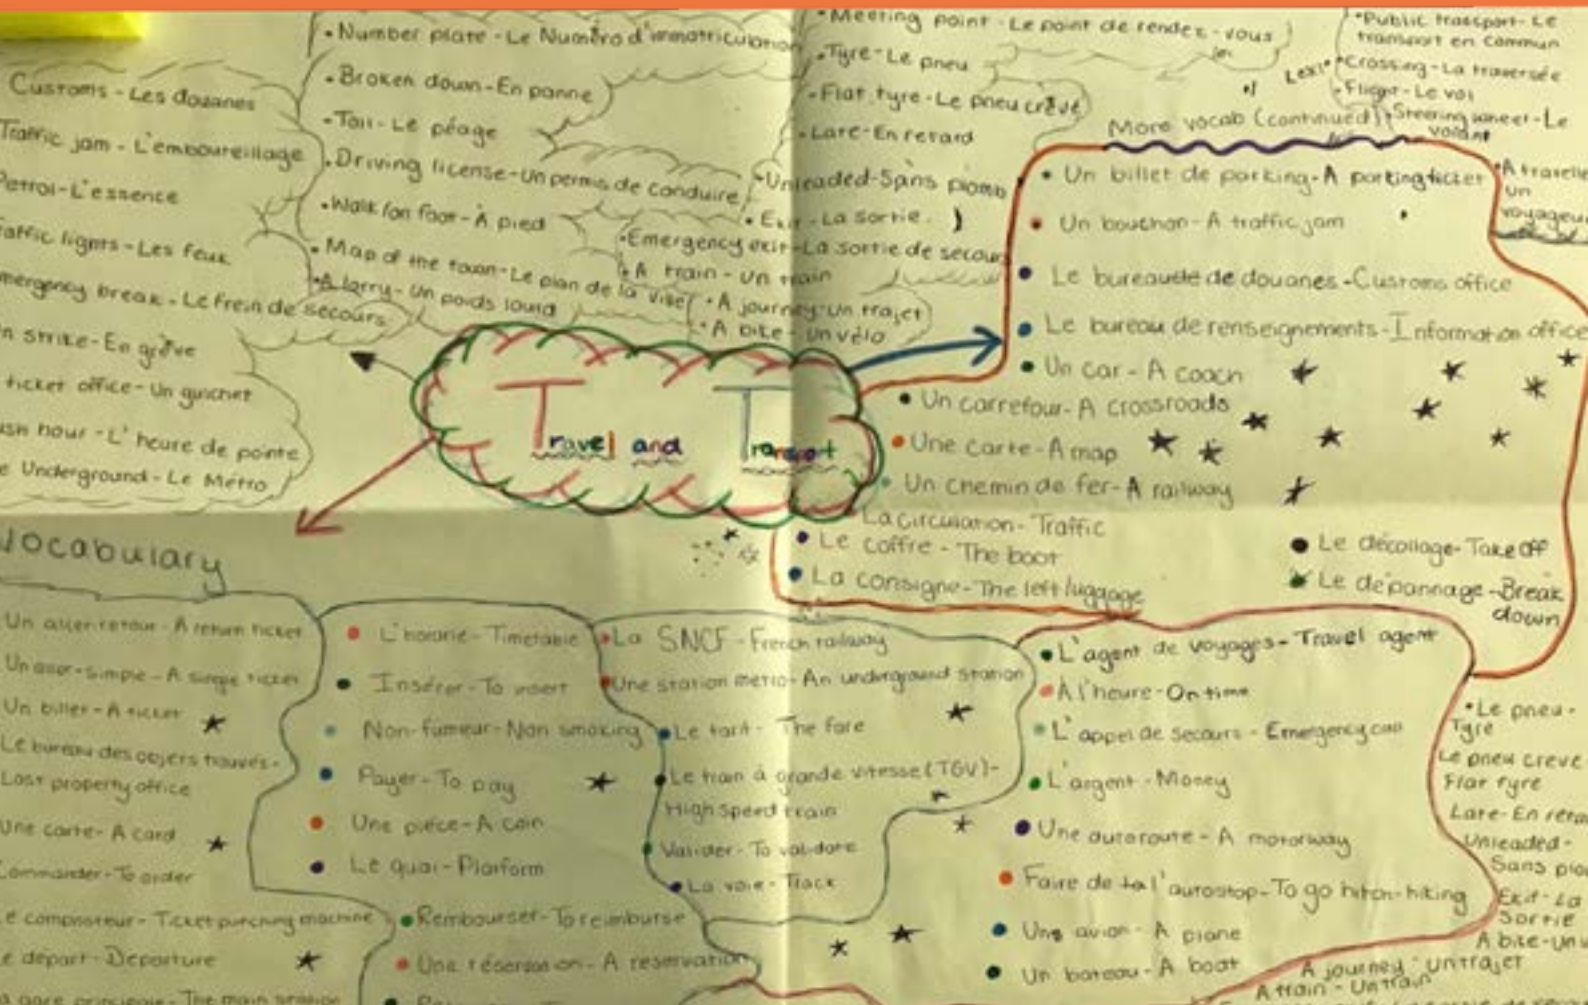 Customs - Les douanes
Traffic jam - L'embouteillage
Petrol - L'essence
Traffic lights - Les feux
Emergency break - Le frein de secours
On strike - En grève
ticket office - Un guichet
Rush hour - L'heure de pointe
Underground - Le Métro
• Number plate - Le Numéro d'immatriculation
• Broken down - En panne
• Toll - Le péage
• Driving license - Un permis de conduire
• Walk/on foot - À pied
• Map of the town - Le plan de la ville
• A lorry - Un poids lourd
• Meeting point - Le point de rendez-vous
• Tyre - Le pneu
• Flat tyre - Le pneu crevé
• Late - En retard
• Unleaded - Sans plomb
• Exit - La sortie
• Emergency exit - La sortie de secours
• A train - Un train
• A journey - Un trajet
• A bike - Un vélo
• Public transport - Le
transport en commun
• Crossing - La traversée
• Flight - Le vol
• Steering wheel - Le
volant
• A traveller
un
voyageur
Travel and Transport
More vocab (continued)
• Un billet de parking - A parking ticket
• Un bouchon - A traffic jam
• Le bureau de douanes - Customs office
• Le bureau de renseignements - Information office
• Un car - A coach
• Un carrefour - A crossroads
• Une carte - A map
• Un chemin de fer - A railway
La circulation - Traffic
• Le coffre - The boot
• La consigne - The left luggage
• Le décollage - Take off
• Le dépannage - Break
down
Vocabulary
Un aller-retour - A return ticket
Un aller-simple - A single ticket
Un billet - A ticket
Le bureau des objets trouvés -
Lost property office
Une carte - A card
Commander - To order
Le composteur - Ticket punching machine
Le départ - Departure
La gare principale - The main station
• L'horaire - Timetable
• Insérer - To insert
• Non-fumeur - Non smoking
• Payer - To pay
• Une pièce - A coin
• Le quai - Platform
• Rembourser - To reimburse
• Une réservation - A reservation
• La SNCF - French railway
• Une station métro - An underground station
• Le tarif - The fare
• Le train à grande vitesse (TGV) -
High speed train
• Valider - To validate
• La voie - Track
• L'agent de voyages - Travel agent
• À l'heure - On time
• L'appel de secours - Emergency call
• L'argent - Money
• Une autoroute - A motorway
• Faire de l'autostop - To go hitch-hiking
• Un avion - A plane
• Un bateau - A boat
• Le pneu -
Tyre
Le pneu crevé -
Flat tyre
Late - En retard
Unleaded -
Sans plomb
Exit - La
Sortie
A bike - Un
A journey - Un trajet
A train - Un train